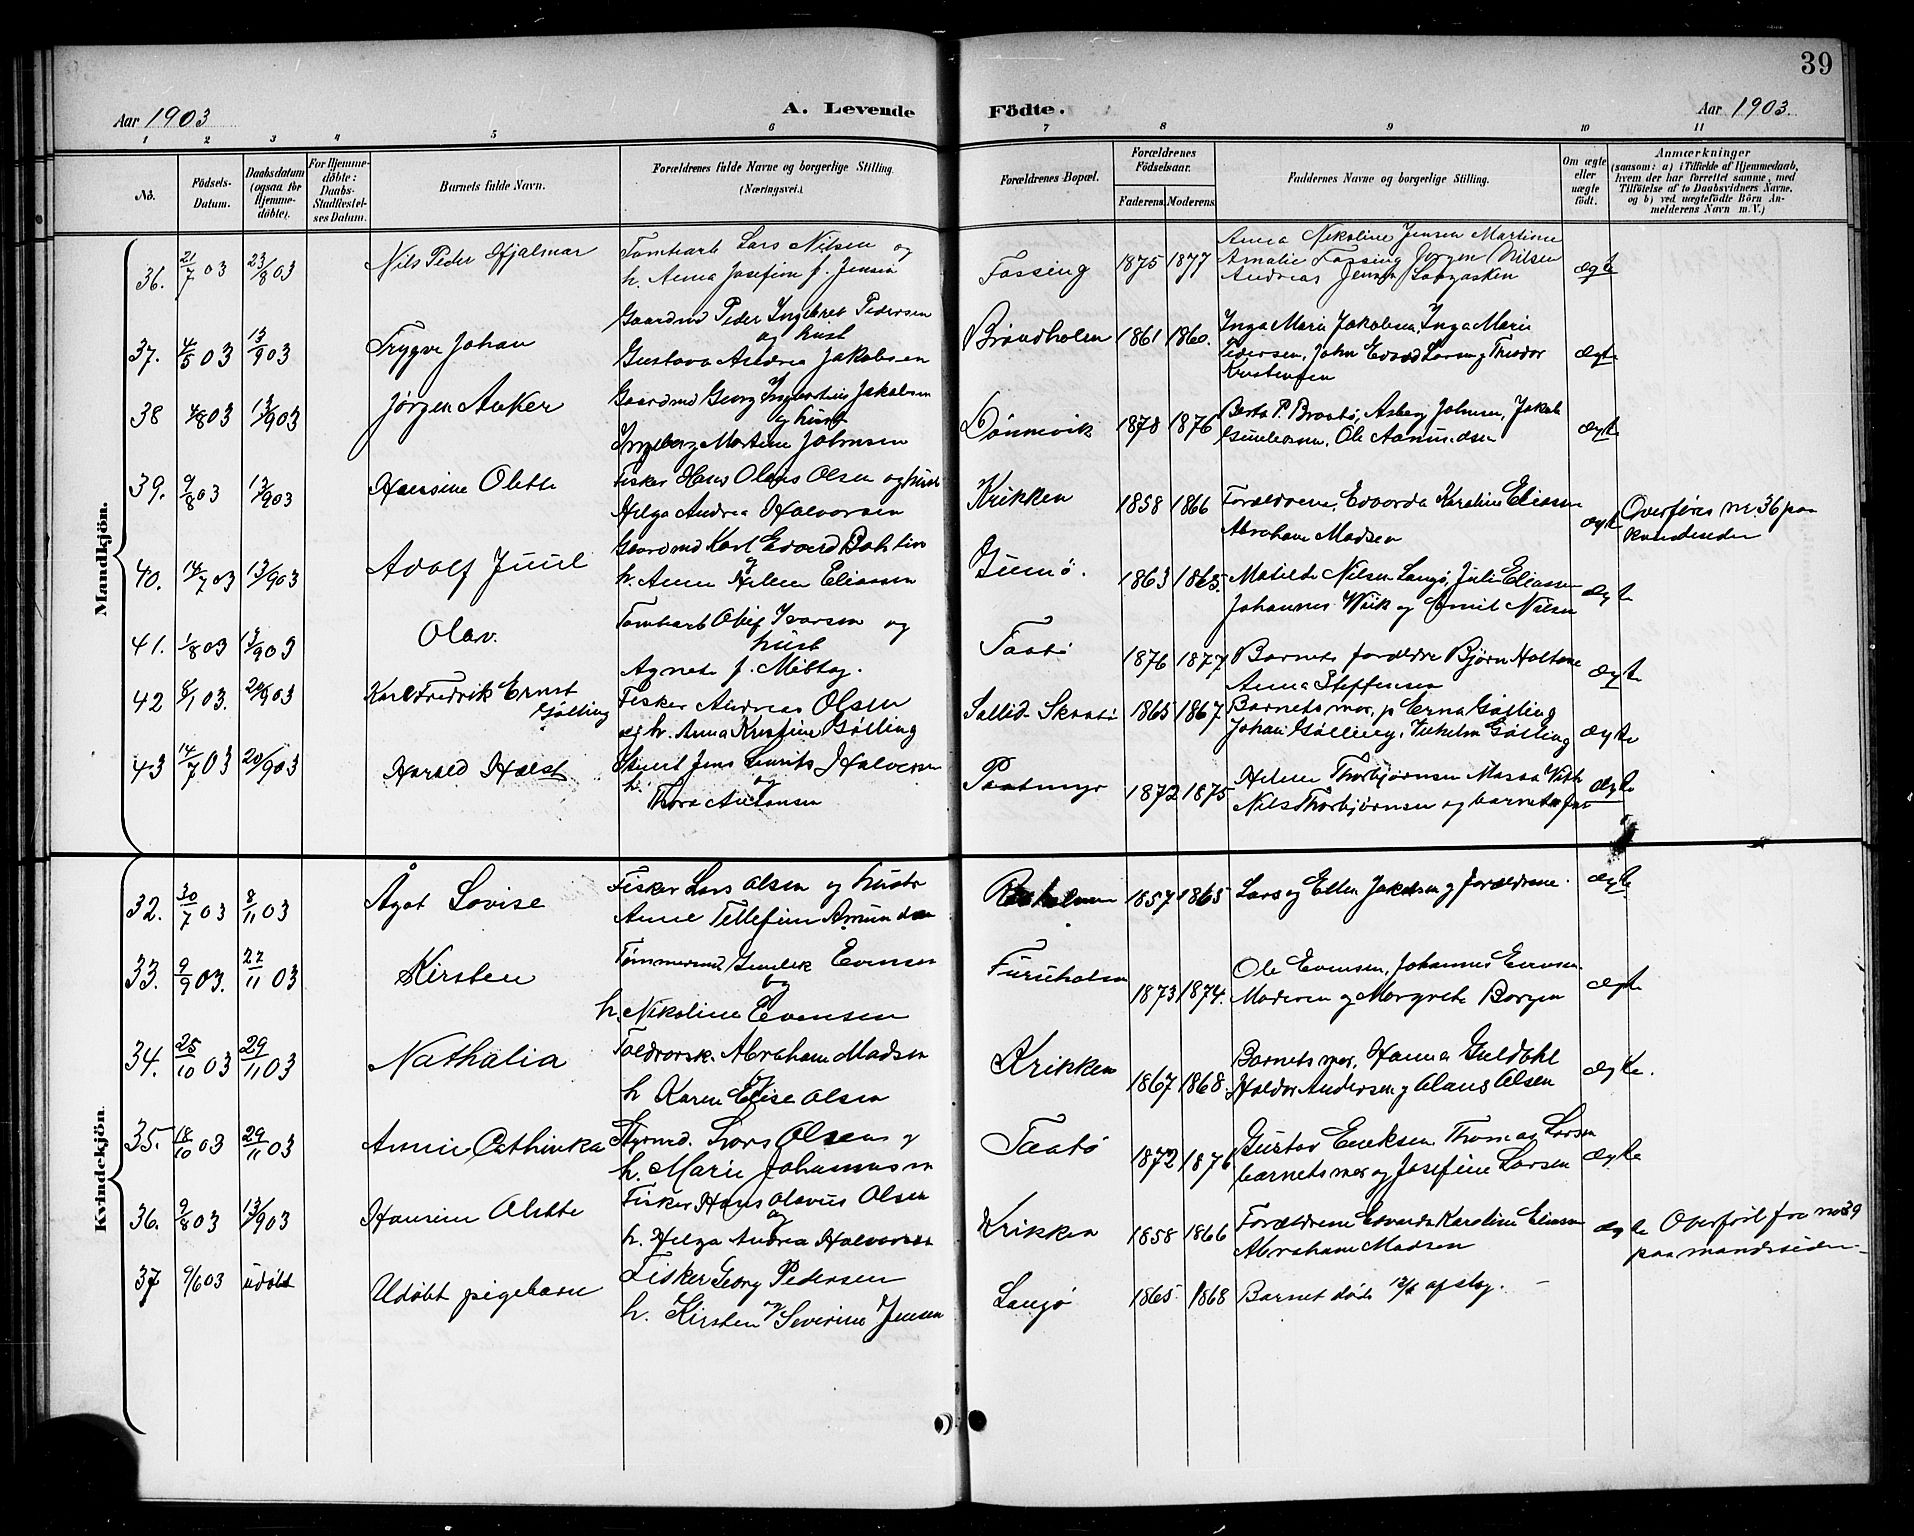 39
Aar 1903
A. Levende Födte.
Aar 1903.
1 2 3 4 5 6 7 8 9 10 11
No.
Födsels-Datum.
Daabsdatum (ogsaa for Hjemme-døbte).
For Hjemme-døbte: Daabs-Stadfæstel-ses Datum.
Barnets fulde Navn.
Forældrenes fulde Navne og borgerlige Stilling. (Næringsvei.)
Forældrenes Bopæl.
Forældrenes Födselsaar.
Faderens. Moderens.
Faddernes Navne og borgerlige Stilling.
Om ægte eller uægte født.
Anmærkninger
(saasom: a) i Tilfælde af Hjemmedaab, hvem der har forrettet samme, med Tilföielse af to Daabsvidners Navne. og b) ved uægtefødte Börn An-melderens Navn m. V.)
Mandkjön.
36. 21/7 03 23/8 03 Nils Peder Hjalmar Tomtearb Lars Nilsen og
h. Anna Josefine f. Jensen
Fossing 1875 1877 Anna Nikoline Jensen Martine
Amalie Fossing Jørgen Nilsen
Andreas Jensen ægte
37. 4/5 03 13/9 03 Trygve Johan Gaardmd Peder Ingebret Pedersen
og hust
Gustava Andrea Jakobsen
Brøndholmen 1861 1860. Inga Marie Jakobsen, Inga Marie
Pedersen, John Edvard Larsen og Theodor
Kristensen ægte
38 4/8 03 13/9 03 Jørgen Anker Gaardmd Georg Ingvartius Jakobsen
og hust
Ingeborg Martine Johnsen
Dønnevik 1878 1876 Berta P. Braatø, Asberg Johnsen, Jakob
Gundersen, Ole Aamundsen ægte
39. 9/8 03 13/9 03 Hansine Olette Fisker Hans Olaus Olsen og hust
Helga Andrea Halvorsen
Krikken 1858 1866 Forældrene, Edvarda Karoline Eliassen
Abraham Madsen ægte Overføres no. 36 paa
kvindesiden
40. 14/7 03 13/9 03 Adolf Juul Gaardmd Karl Edvard Dahlin
og
h. Anne Helene Eliassen
Gumø. 1863 1865. Matilde Nilsen Langø, Julie Eliassen
Johannes Wiik og Emil Nilsen ægte
41. 1/8 03 13/9 03 Olav. Tomtearb Oluf Ivarsen og
hust
Agnete f. Midtøy.
Taatø 1876 1877 Barnets forældre Bjørn Holtane
Anna Steffensen ægte
42 8/1 03. 20/9 03 Karl Fredrik Ernst
Gølling Fisker Andreas Olsen
og h. Anna Kristine Gølling
Skaatø 1865 1867 Barnets mor, p Erna Gølling
Johan Gølling, Vilhelm Gølling ægte
43 14/7 03 20/9 03 Harald Holst Skuert Jens Laurits Halvorsen
og
h. Thora Antonsen
Paatmyr 1872 1875 Helene Thorbjørnsen Massa
Nils Thorbjørnsen og barnets far ægte
Kvindekjön.
32. 30/7 03 8/11 03 Ågot Lovise Fisker Lars Olsen og hustr
Anne Tellefine Amundsen
1857 1865 Lars og Ellen Jakobsen og forældrene. ægte
33. 9/9 03. 22/11 03 Kirsten Tømmermd Gunleik Evensen
og
h. Nikoline Evensen
Furuholmen 1873 1874. Ole Evensen, Johannes Evensen.
Moderen og Margrete Borgen ægte
34. 25/10 03 29/11 03 Nathalia Toldrorsk. Abraham Madsen
og
h Karen Elise Olsen
Krikken 1867 1868. Barnets mor, Hanna Guldahl
Haldor Andersen og Olaus Olsen ægte.
35. 18/10 03 29/11 03 Annie Cathinka Styrmd. Lars Olsen og
h. Marie Johannesen
Taatø 1872 1876 Gustav Eriksen Thomas Larsen
barnets mor og Josefine Larsen ægte
36. 9/8 03 13/9 03 Hansine Olette Fisker Hans Olavus Olsen
og
h. Helga Andrea Halvorsen
Krikken 1858 1866 Forældrene Edvarda Karoline Eliassen
Abraham Madsen ægte Overført fra no 39
paa mandssiden
37 9/6 03 udøbt Udøbt pigebarn Fisker Georg Pedersen
og
h. Kirsten Severine Jensen
Langø 1865 1868 Barnet døde 12/6